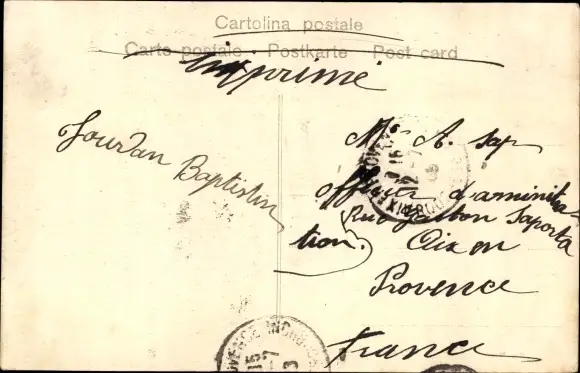 Cartolina postale
Carte postale Postkarte Post card
imprimé
Jourdan Baptistin
Mr A. Sap
officier d'aministra-
Rue Gaston Saporta
tion. Aix en
Provence
France